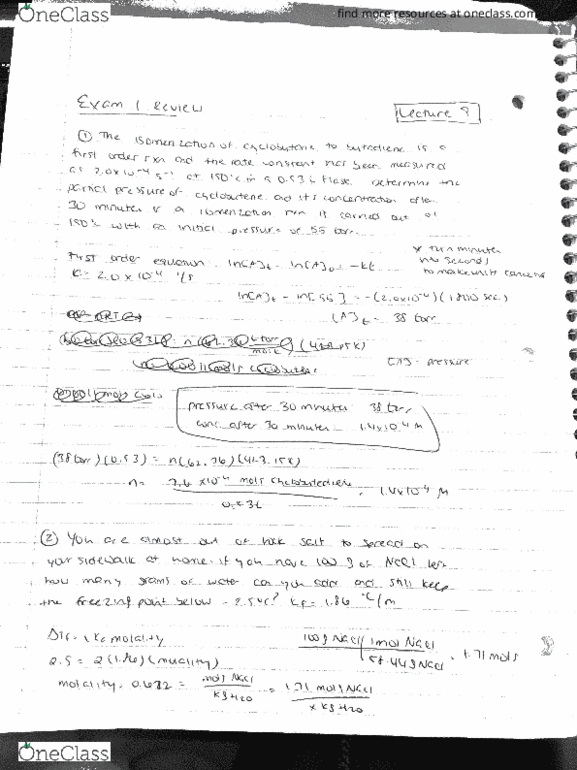 OneClass
find more resources at oneclass.com
Exam 1 Review
Lecture 9
① The isomerization of cyclobutene to butadiene is a
first order rxn and the rate constant has been measured
as 2.0x10⁻⁴ s⁻¹ at 150°C in a 0.53 L flask. Determine the
partial pressure of cyclobutene and its concentration after
30 minutes if a isomerization rxn is carried out at
150°C with an initial pressure of 55 torr.
First order equation ln[A]t - ln[A]₀ = -kt
* turn minutes
into seconds
to make units cancel
k = 2.0 x 10⁻⁴ 1/s
ln[A]t - ln[55] = -(2.0x10⁻⁴)(1800 sec)
[A]t = 38 torr
[A] = pressure
pressure after 30 minutes 38 torr
conc after 30 minutes 1.4x10⁻⁴ M
(38 torr)(0.53) = n(62.36)(423.15K)
n = 7.6 x10⁻⁴ mols
0.53L
= 1.4x10⁻⁴ M
② You are almost out of rock salt to spread on
your sidewalk at home. if you have 100 g of NaCl left
how many grams of water can you and still keep
the freezing point below -2.5°C? Kf = 1.86 °C/m
ΔTf = i Kf molality
100g NaCl 1mol NaCl
58.44g NaCl
= 1.71 mols
2.5 = 2(1.86)(molality)
molality = 0.672 = mols NaCl
kg H₂O
= 1.71 mols NaCl
x kg H₂O
OneClass